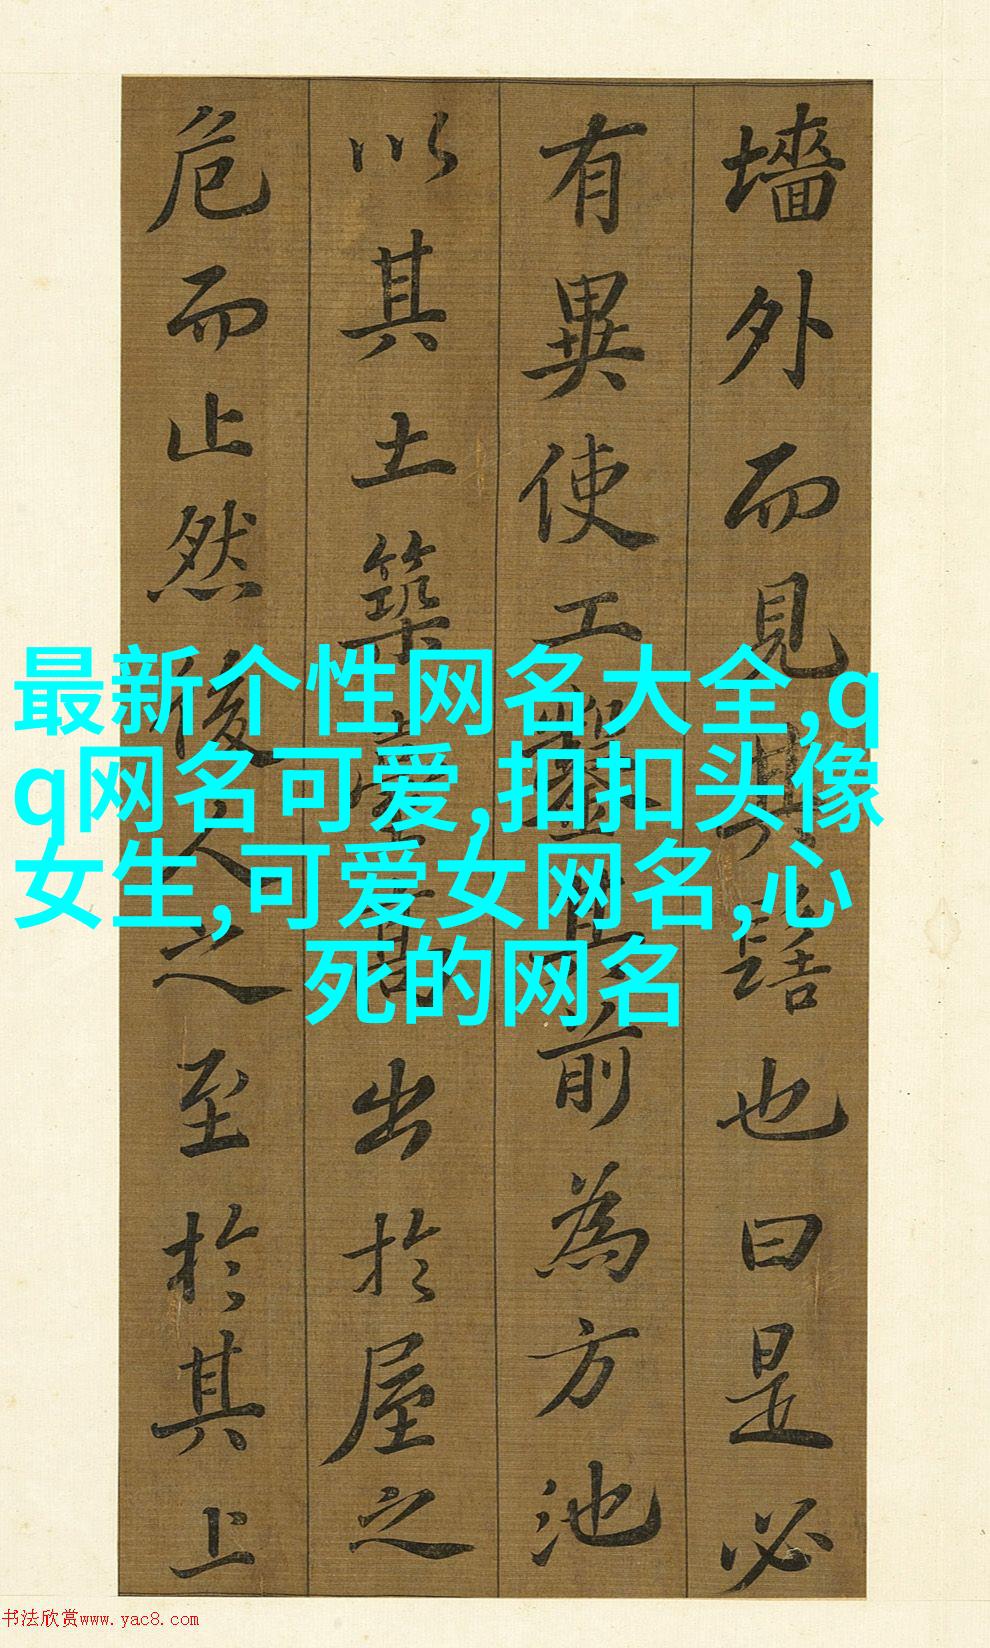 墻外而見其髻也曰是必
有異使工鑿其前為方池
以其土築臺高出於屋之
危而止然後人之至於其上
最新个性网名大全,q
q网名可爱,扣扣头像
女生,可爱女网名,心
死的网名
书法欣赏www.yac8.com